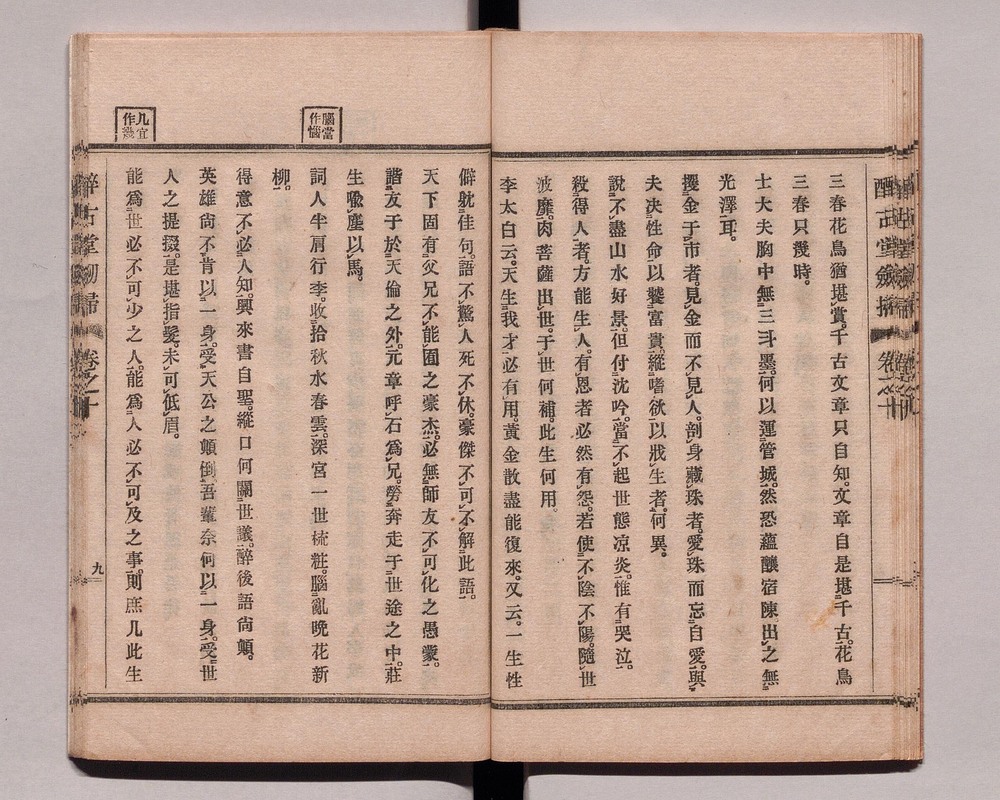 三春花鳥猶堪賞。千古文章只自知。文章自是堪千古。花鳥
三春只幾時。
士大夫胸中無三斗墨。何以運管城。然恐蘊釀宿陳出之無
光澤耳。
攫金于市者。見金而不見人。剖身藏珠者。愛珠而忘自愛。與
夫决性命以饕富貴。縱嗜欲以戕生者。何異。
說不盡山水好景。但付沈吟。當不起世態凉炎。惟有哭泣。
殺得人者。方能生人。有恩者必然有怨。若使不陰不陽。隨世
波靡。肉菩薩出世。于世何補。此生何用。
李太白云。天生我才必有用。黃金散盡能復來。又云。一生性
僻躭佳句。語不驚人死不休。豪傑不可不解此語。
天下固有父兄不能囿之豪杰。必無師友不可化之愚蒙。
諧友于於天倫之外。元章呼石爲兄。勞奔走于世途之中。莊
生喩塵以馬。
詞人半肩行李。收拾秋水春雲。深宮一世梳粧。腦亂晚花新
柳。
得意不必人知。興來書自聖。縱口何關世議。醉後語尙顛。
英雄尙不肯以一身受天公之顛倒。吾輩奈何以一身受世
人之提掇。是堪指髮。未可低眉。
能爲世必不可少之人。能爲人必不可及之事。則庶几此生
腦當
作惱
九宜
作幾
醉古堂劒掃
卷之十
九